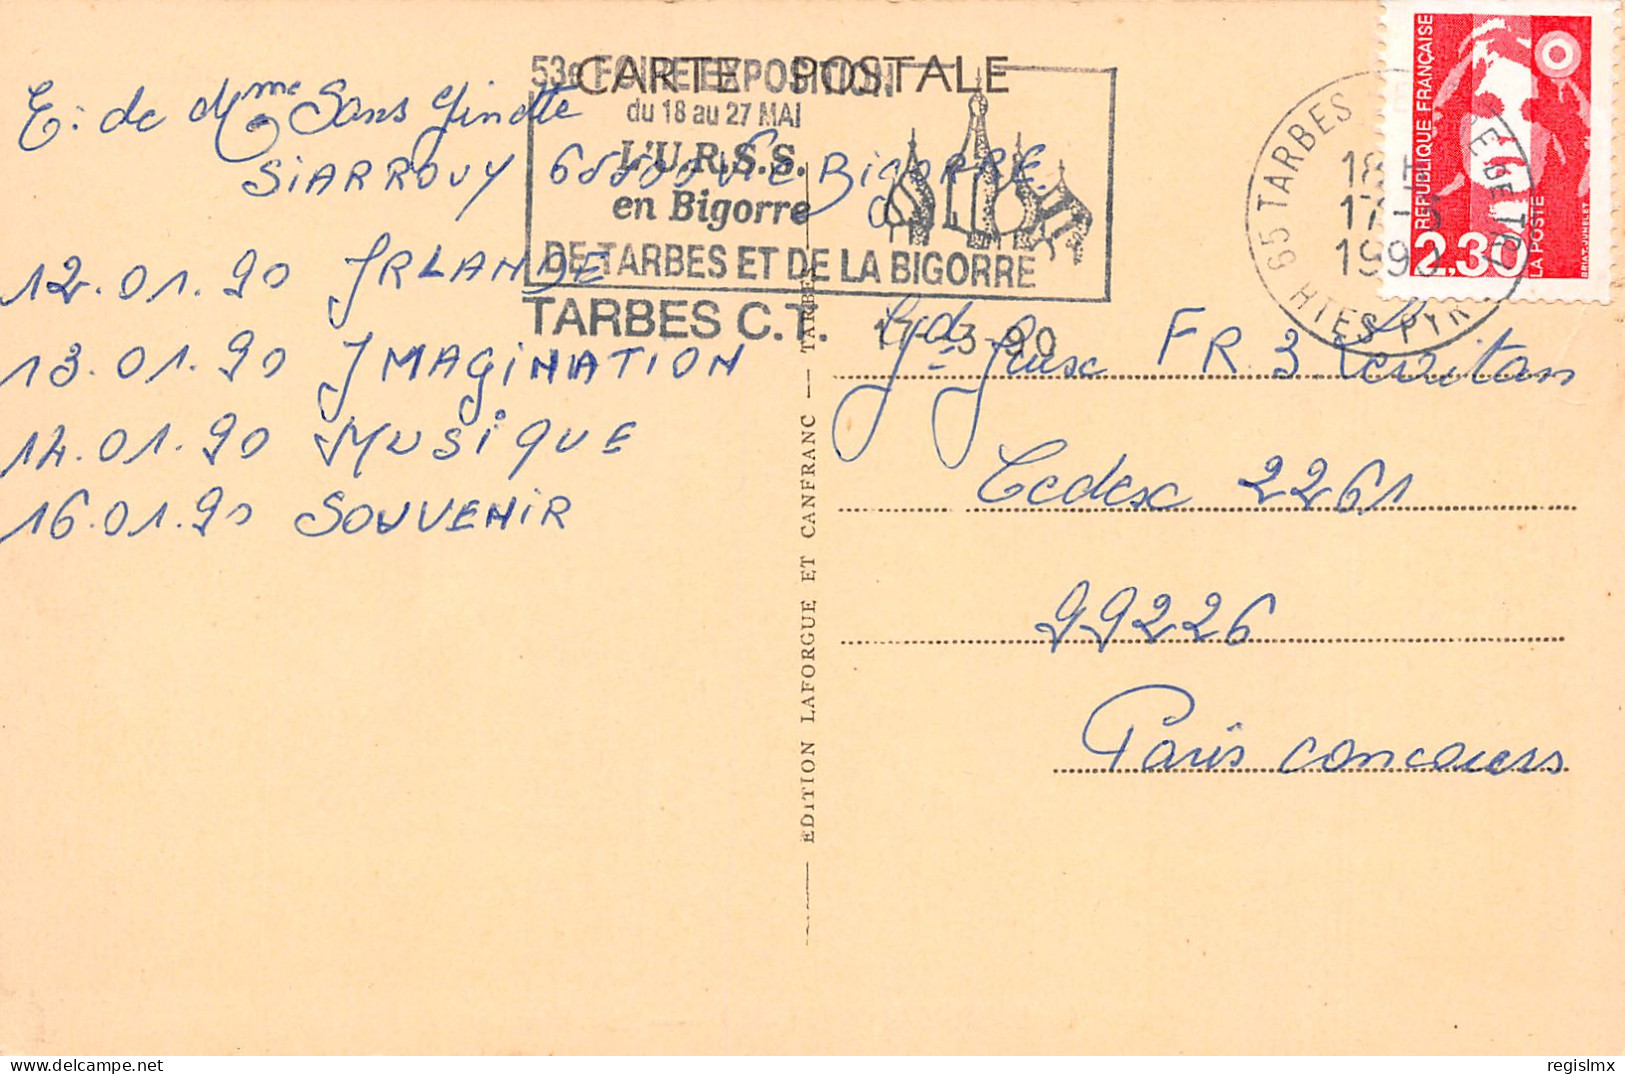 CARTE POSTALE
53e FOIRE EXPOSITION
du 18 au 27 MAI
L'U.R.S.S.
en Bigorre
DE TARBES ET DE LA BIGORRE
TARBES C.T. 17-3-90
65 TARBES
18H
17-3
1990
HTES PYR
RÉPUBLIQUE FRANÇAISE
2,30
LA POSTE
BRIAT-JUMELET
E: de Mme Sans Ginette
SiARROUY 65500 Vic Bigorre
12.01.90 IRLANDE
13.01.90 IMAGINATION
14.01.90 MUSiQUE
16.01.90 SOUVENIR
EDITION LAFORGUE ET CANFRANC — TARBES
FR 3 Levitan
Cedex 2261
99226
Paris concours
delcampe.net
regislmx